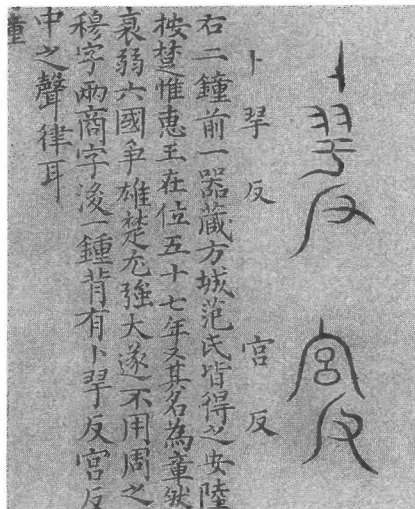 卜𦏴反 宮反
卜𦏴反 宮反
右二鐘前一器蔵方城范氏皆得之安陸
按楚惟惠王在位五十七年又其名為章然
衰弱六國爭雄楚尤強大遂不用周之
穆字兩商字後一鍾背有卜𦏴反宮反
中之聲律耳